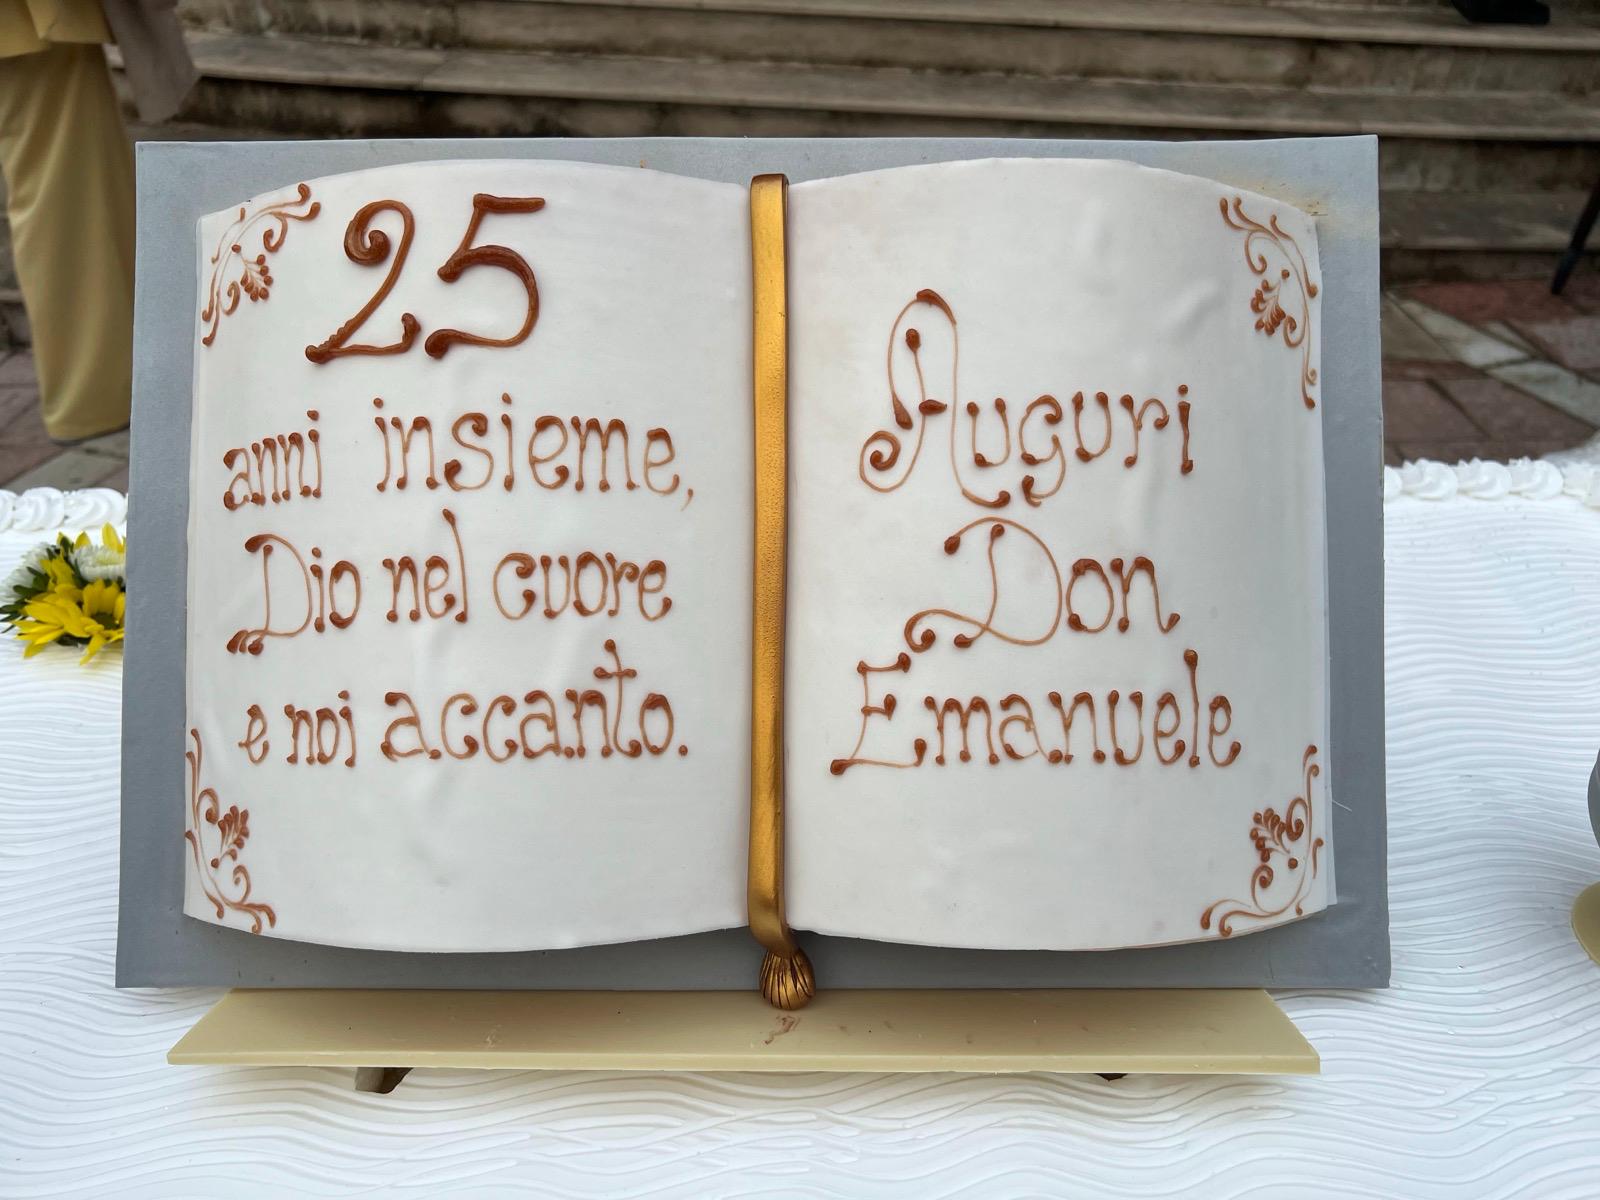 25
anni insieme,
Dio nel cuore
e noi accanto.
Auguri
Don
Emanuele